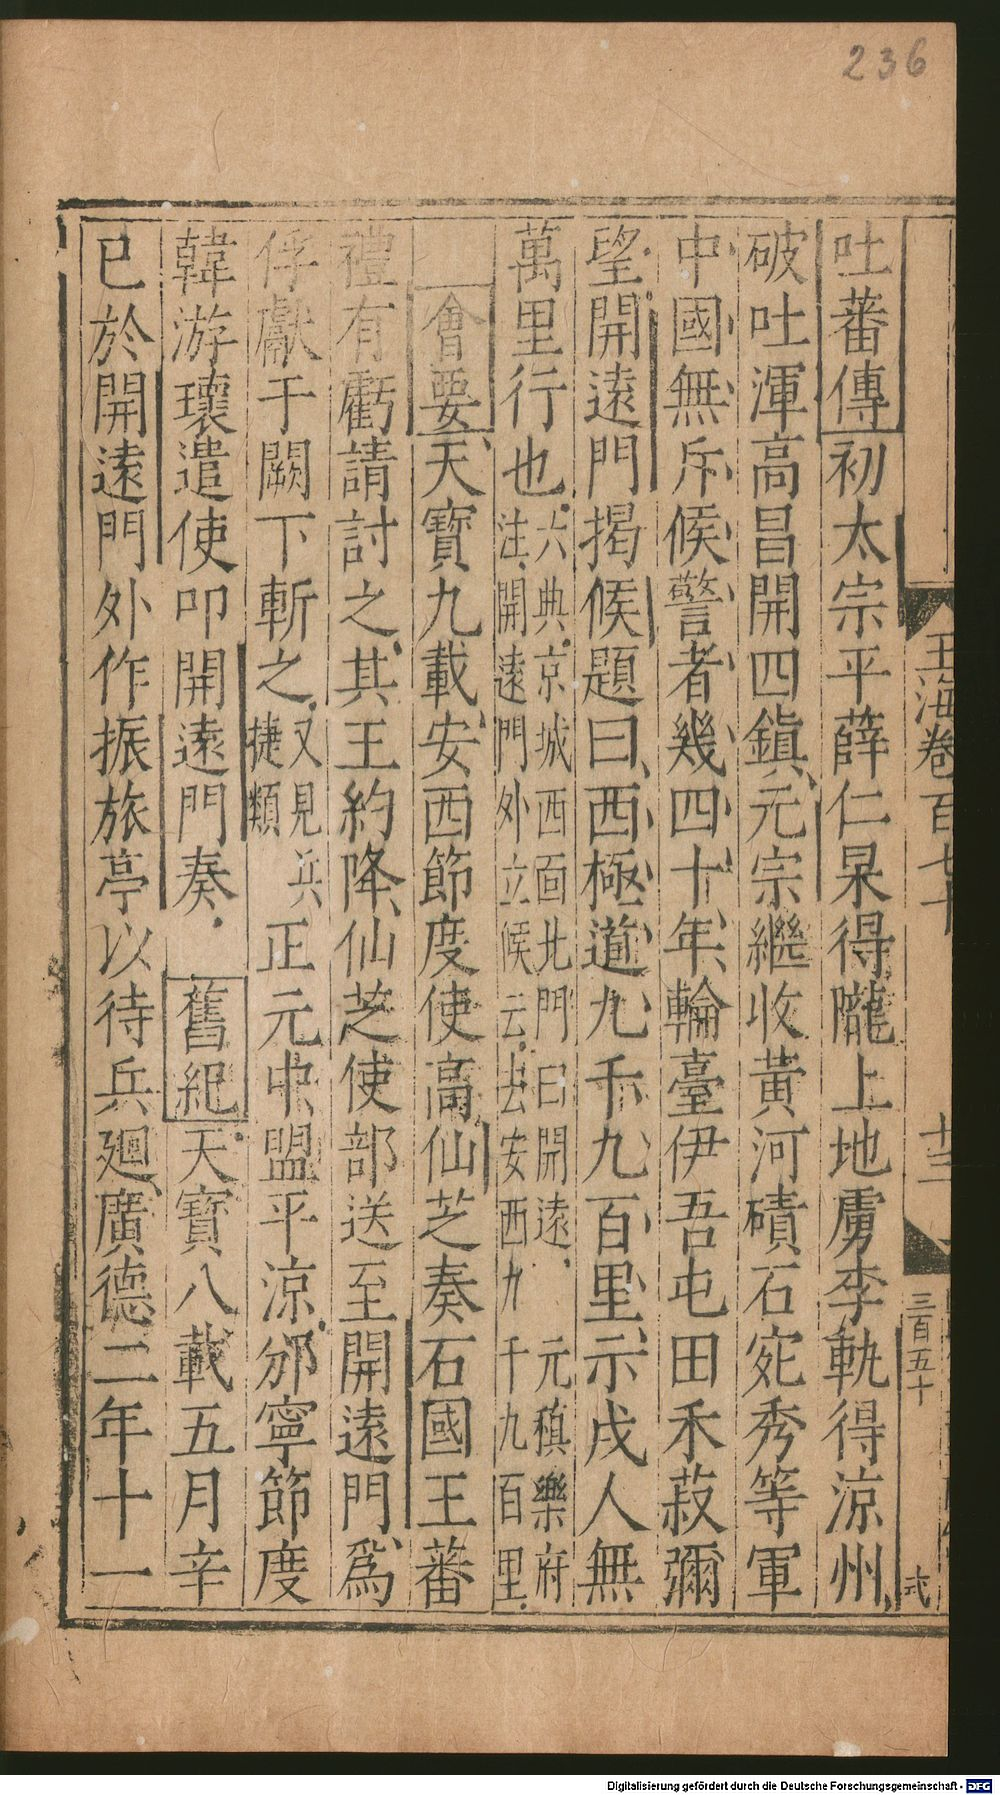 236
玉海卷百七十
十三
三百五十
吐蕃傳初太宗平薛仁杲得隴上地虜李軌得涼州
破吐渾高昌開四鎮元宗繼收黃河磧石宛秀等軍
中國無斥候警者幾四十年輪臺伊吾屯田禾菽彌
望開遠門揭候題曰西極道九千九百里示戍人無
萬里行也六典京城西面北門曰開遠元稹樂府
注開遠門外立候云去安西九千九百里
會要天寶九載安西節度使高仙芝奏石國王蕃
禮有虧請討之其王約降仙芝使部送至開遠門爲
俘獻于闕下斬之又見兵
捷類
正元中盟平涼邠寧節度
韓游瓌遣使叩開遠門奏舊紀天寶八載五月辛
巳於開遠門外作振旅亭以待兵廻廣德二年十一
Digitalisierung gefördert durch die Deutsche Forschungsgemeinschaft - DFG